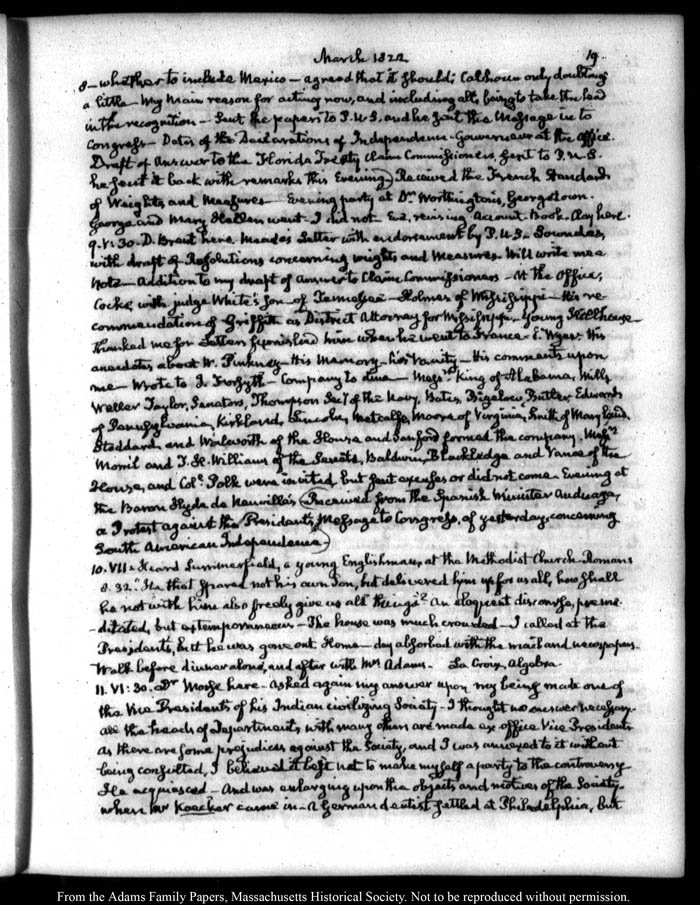 March 1822
19.
8 - whether to include Mexico - agreed that it should; Calhoun only doubting
a little - My main reason for acting now, and including all, being to take the lead
in the recognition - Sent the papers to P.U.S. and he sent this Message in to
Congress - Dates of the Declarations of Independence - Gouverneur at the office.
Draft of Answer to the Florida Treaty Claim Commissioners, sent to P.U.S.
he sent it back with remarks this Evening) Received the French Standard
of Weights and Measures - Evening party at Dr. Worthington's, Georgetown.
George and Mary Hellen went. I did not. Eve, revising Account Book. Clay here.
9. V: 30. D. Brent here. Meade's Letter with endorsement by P.U.S. Lowndes,
with draft of Resolutions concerning weights and Measures. Will write me a
Note - Addition to my draft of answer to Claim Commissioners - At the Office,
Cocke, with judge White's Son of Tennessee - Holmes of Mississippi - His re-
commendation of Griffith as District Attorney for Mississippi - Young
thanked me for Letters furnished him when he went to France - E. Wyer. His
anecdotes about W. Pinkney - His Memory - his Vanity - His comments upon
me - Wrote to J. Forsyth - Company to dine - Messrs. King of Alabama, Mills
Waller Taylor, Senators, Thompson Secy of the Navy, Bates, Bigelow, Butler, Edwards
of Pennsylvania, Kirkland, Lincoln, Metcalfe, Moore of Virginia, Smith of Maryland,
Stoddard, and Walworth of the House and Sanford formed the company. Messrs
Morril and T. H. Williams of the Senate, Baldwin, Blackledge and Vance of the
House, and Col. Polk were invited, but sent excuses or did not come. Evening at
the Baron Hyde de Neuville's (Received from the Spanish Minister Anduaga,
a Protest against the President's Message to Congress, of yesterday, concerning
South American Independence)
10. VII: Heard Summerfield, a young Englishman, at the Methodist Church - Romans
8. 32. "He that spared not his own Son, but delivered him up for us all, how shall
he not with him also freely give us all things"? An eloquent discourse, preme-
-ditated, but extemporaneous - The house was much crowded - I called at the
Presidents, but he was gone out. Home - day absorbed with the mail and newspapers.
Walk before dinner alone, and after with Mrs Adams. La Croix, Algebra.
11. VI: 30. Dr Morse here - Asked again my answer upon my being made one of
the Vice Presidents of his Indian civilizing Society - I thought no answer necessary.
all the heads of Departments, with many others are made ex officio Vice Presidents
As there are some prejudices against the Society, and I was annexed to it without
being consulted, I believed it best not to make myself a party to the controversy
He acquiesced - And was enlarging upon the objects and motives of the Society.
when Mr Koecker came in - A German dentist settled at Philadelphia, but
From the Adams Family Papers, Massachusetts Historical Society. Not to be reproduced without permission.